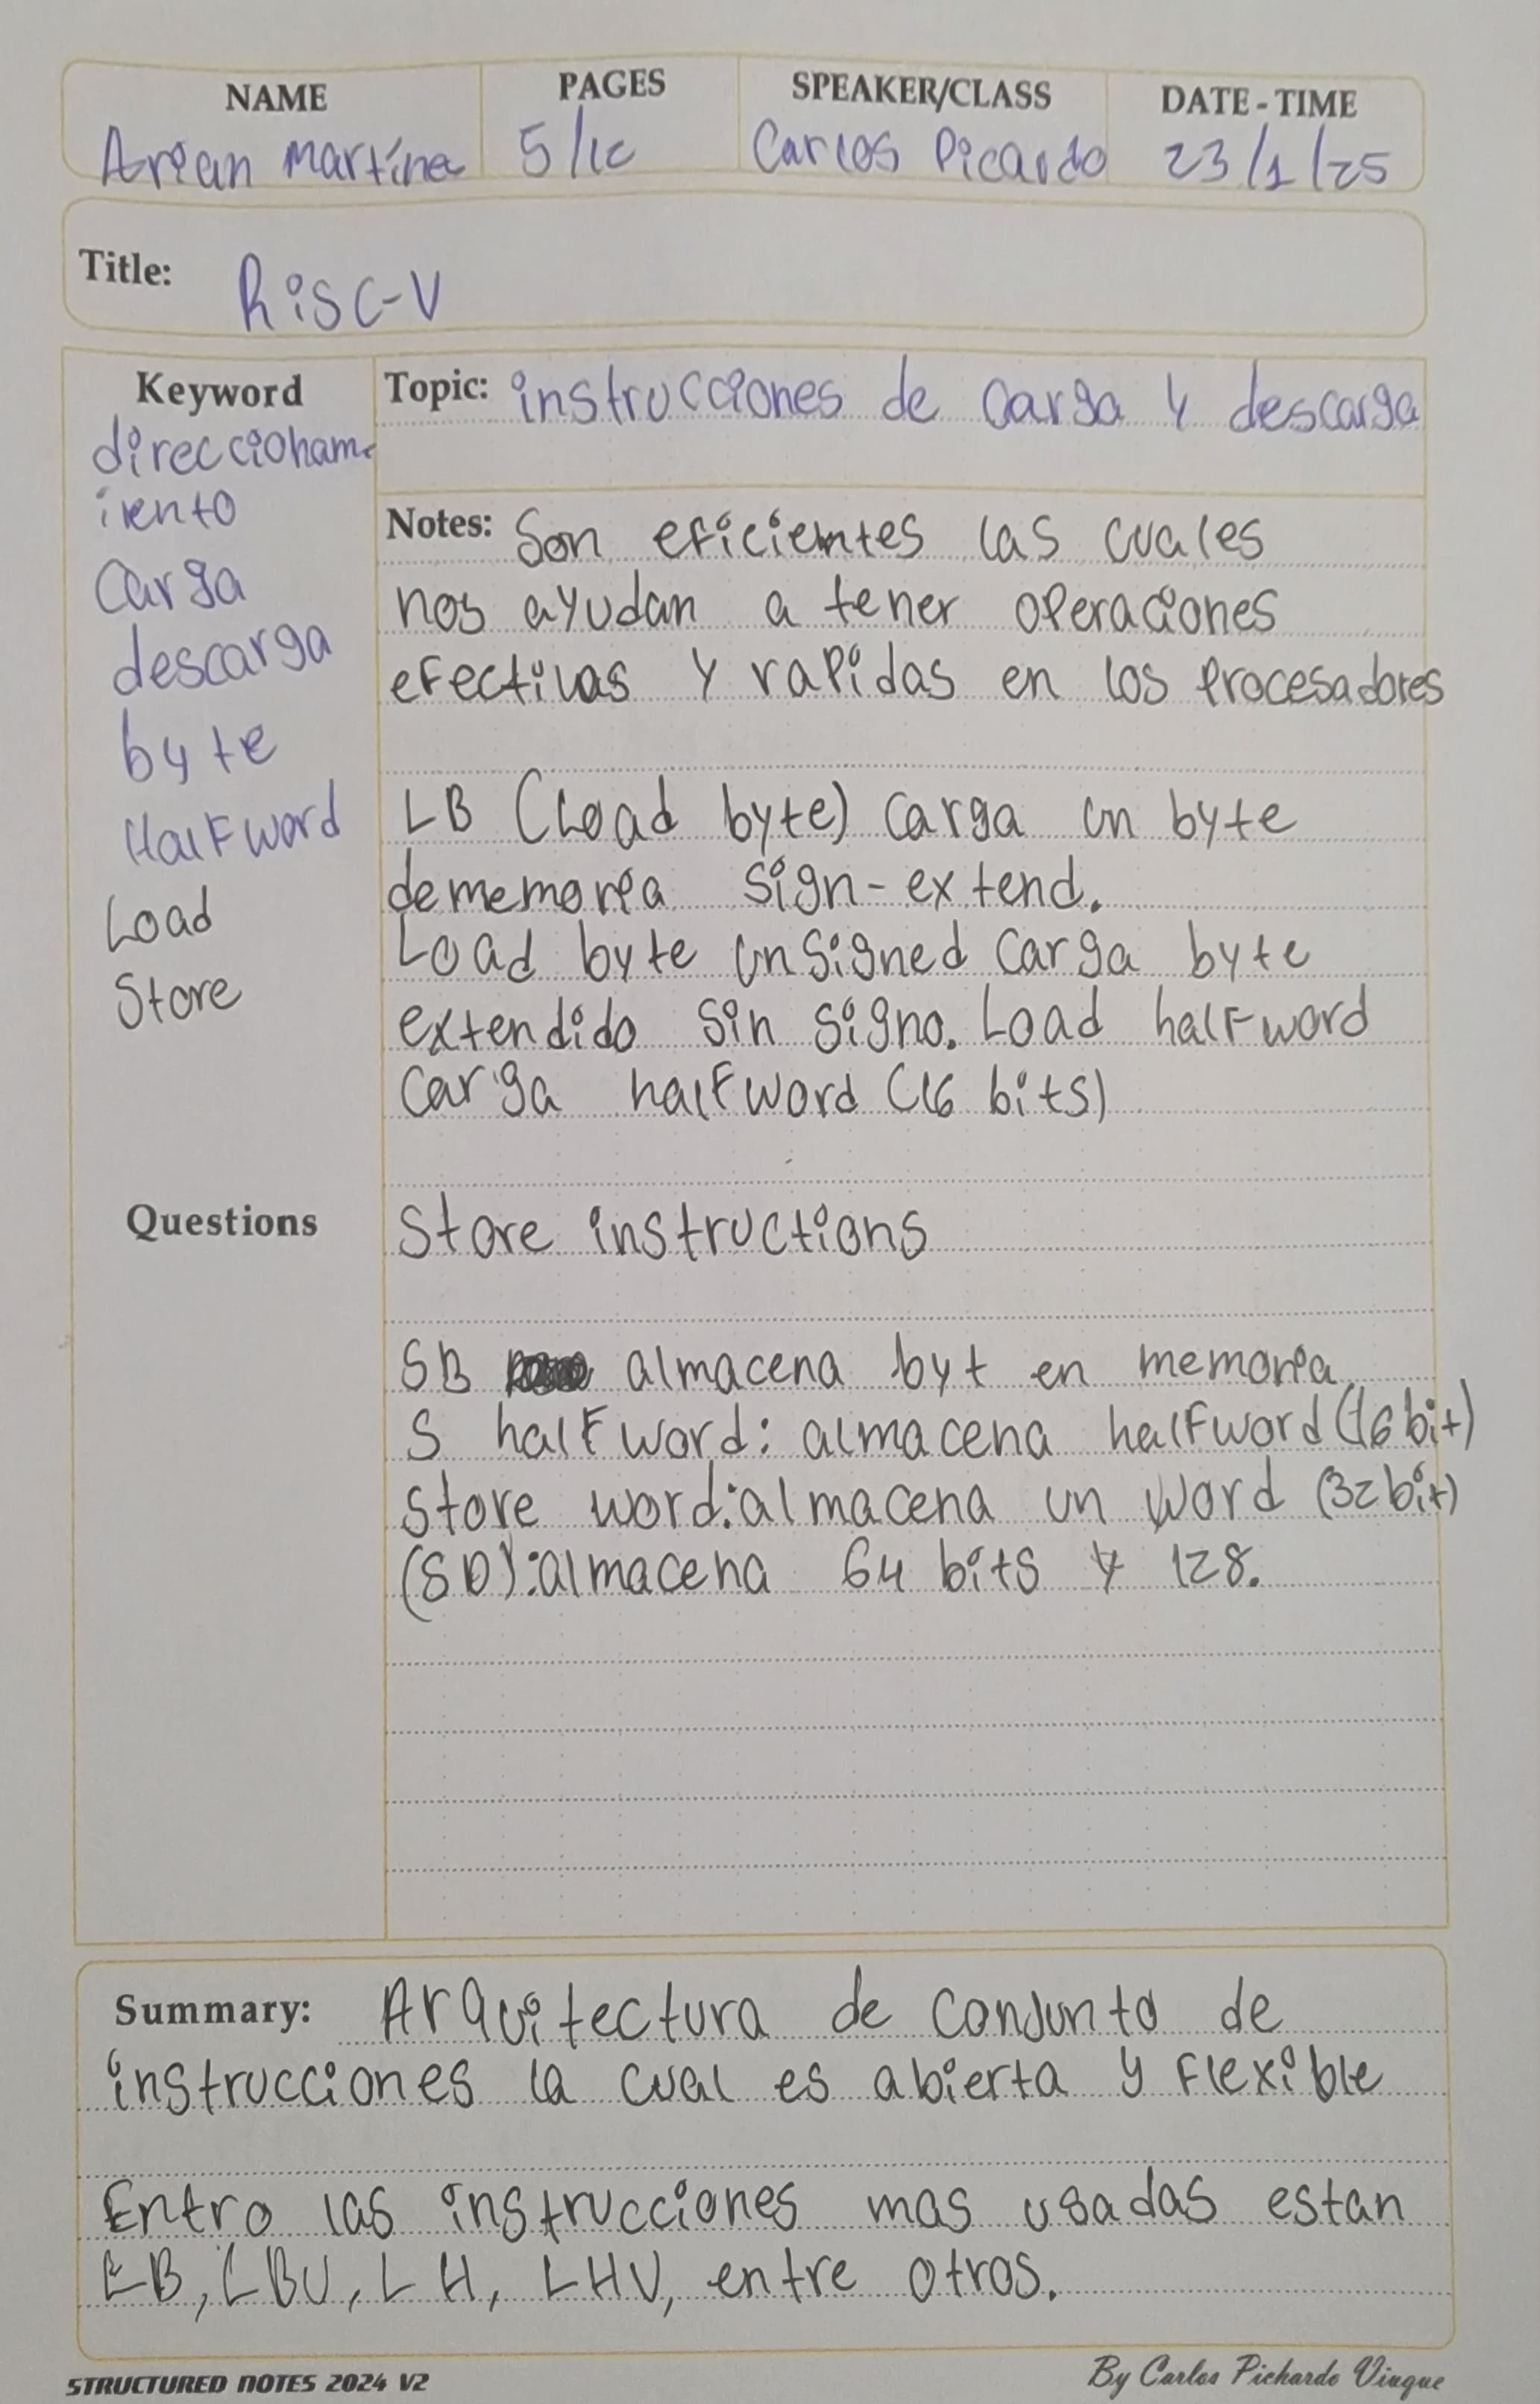 NAME PAGES SPEAKER/CLASS DATE - TIME
Arian Martine 5/10 Carlos Picardo 23/1/25
Title: RiSC-V
Keyword
direccionam-
iento
Carga
descarga
byte
HalFword
Load
Store
Questions
Topic: instrucciones de carga y descarga
Notes: Son eficientes las cuales
nos ayudan a tener operaciones
efectivas y rapidas en los procesadores
LB (Load byte) carga un byte
de memoria sign-extend.
Load byte unsigned carga byte
extendido sin signo. Load halfword
carga halfword (16 bits)
Store instructions
SB almacena byt en memoria
S halfword: almacena halfword (16 bit)
Store word: almacena un word (32 bit)
(SD): almacena 64 bits y 128.
Summary: Arquitectura de conjunto de
instrucciones la cual es abierta y flexible
Entro las instrucciones mas usadas estan
LB, LBU, LH, LHU, entre otros.
STRUCTURED NOTES 2024 V2 By Carlos Pichardo Viuque